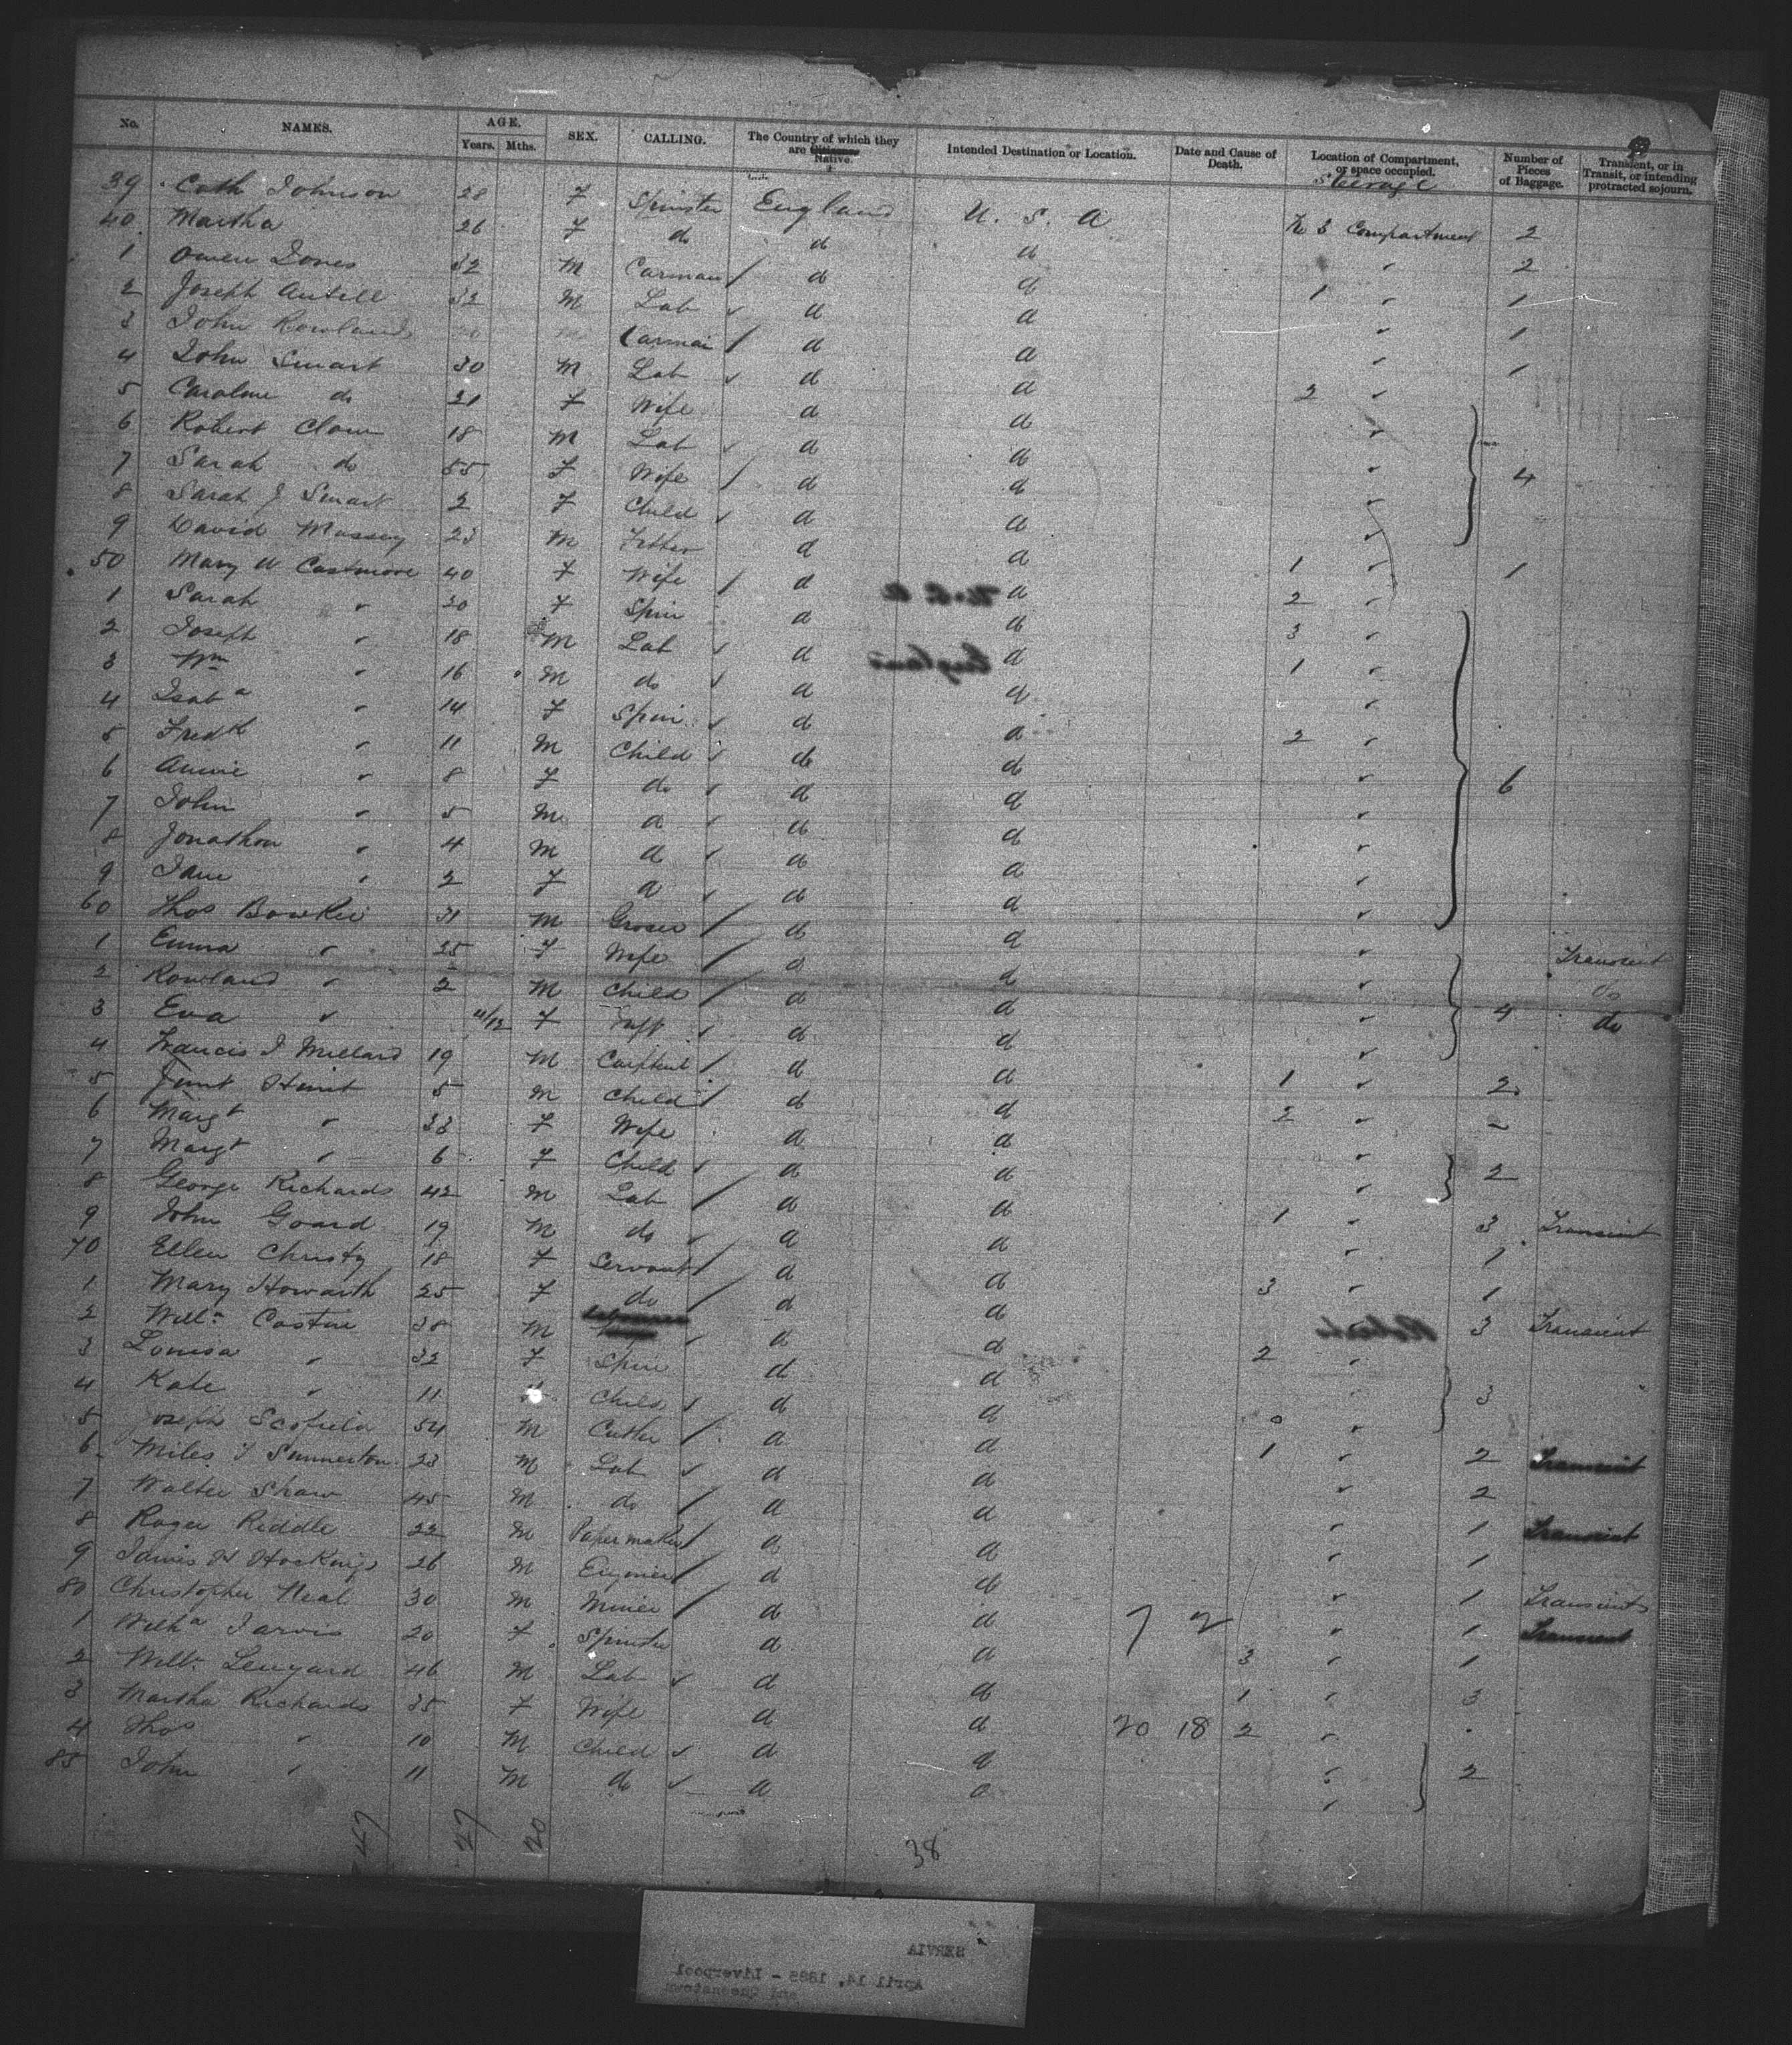 No. NAMES. AGE. Years. Mths. SEX. CALLING. The Country of which they are Citizens Native. Intended Destination or Location. Date and Cause of Death. Location of Compartment, or space occupied. Number of Pieces of Baggage. Transient, or in Transit, or intending protracted sojourn.
Steerage
39 Cath Johnson 28 F Spinster England U. S. A
40 Martha 26 F do d d Compartment 2
1 Owen Jones 32 M Carman d d 2
2 Joseph Antill 32 M Lab d d 1 1
3 John Rowland M Carman d d 1
4 John Smart 30 M Lab d d 1
5 Caroline do 21 F Wife d d 2
6 Robert Clown 18 M Lab d d
7 Sarah do 55 F Wife d d 4
8 Sarah J Smart 2 F Child d d
9 David Massey 23 M Fitter d d 1 1
50 Mary A Castmore 40 F Wife d d 2
1 Sarah " 20 F Spin d d 3
2 Joseph " 18 M Lab d d 1
3 Wm " 16 M do d d
4 Isab a " 14 F Spin d d 2
5 Fredk " 11 M Child do d
6 Annie " 8 F do d d 6
7 John " 5 M d d d
8 Jonathon " 4 M d d d
9 Jane " 2 F d d d
60 Thos Bowker 31 M Grocer d d
1 Emma " 25 F Wife d d Transient
2 Rowland " 2 M Child d d do
3 Eva " 11/12 F Inft d d 4 do
4 Francis J Millard 19 M d d 1 2
5 Hunt 5 M Child d d 2
6 Margt " 33 F Wife d d
7 Margt " 6 F Child d d 2
8 George Richards 42 M Lab d d 1 3 Transient
9 John Goard 19 M do d d 1
70 Ellen Christy 18 F Servant d d 3 1
1 Mary Howarth 25 F do d d 3 Transient
2 Willm 38 M d d 2
3 Louisa " 32 F Spin d d
4 Kate " 11 Child d d 3
5 Joseph Scofield 54 M Cutler d d 1 2 Transient
6 Miles J Summerton 23 M Lab d d 2
7 Walter Shaw 45 M do d d 1 Transient
8 Roger Riddle 22 M Papermaker d d 1
9 James H Hockings 26 M Engineer d d 1 Transient
80 Christopher Neal 30 M Miner d d 7 2 1 Transient
1 Wilha Jarvis 20 F Spinster d d 3 1
2 Willm Lenyard 46 M Lab d d 1 3
3 Martha Richards 35 F Wife d d 20 18 2
4 Thos " 10 M Child d d 2
85 John " 11 M do d d
47 27 20 38
SERVIA
April 14, 1885 - Liverpool
and Queenstown